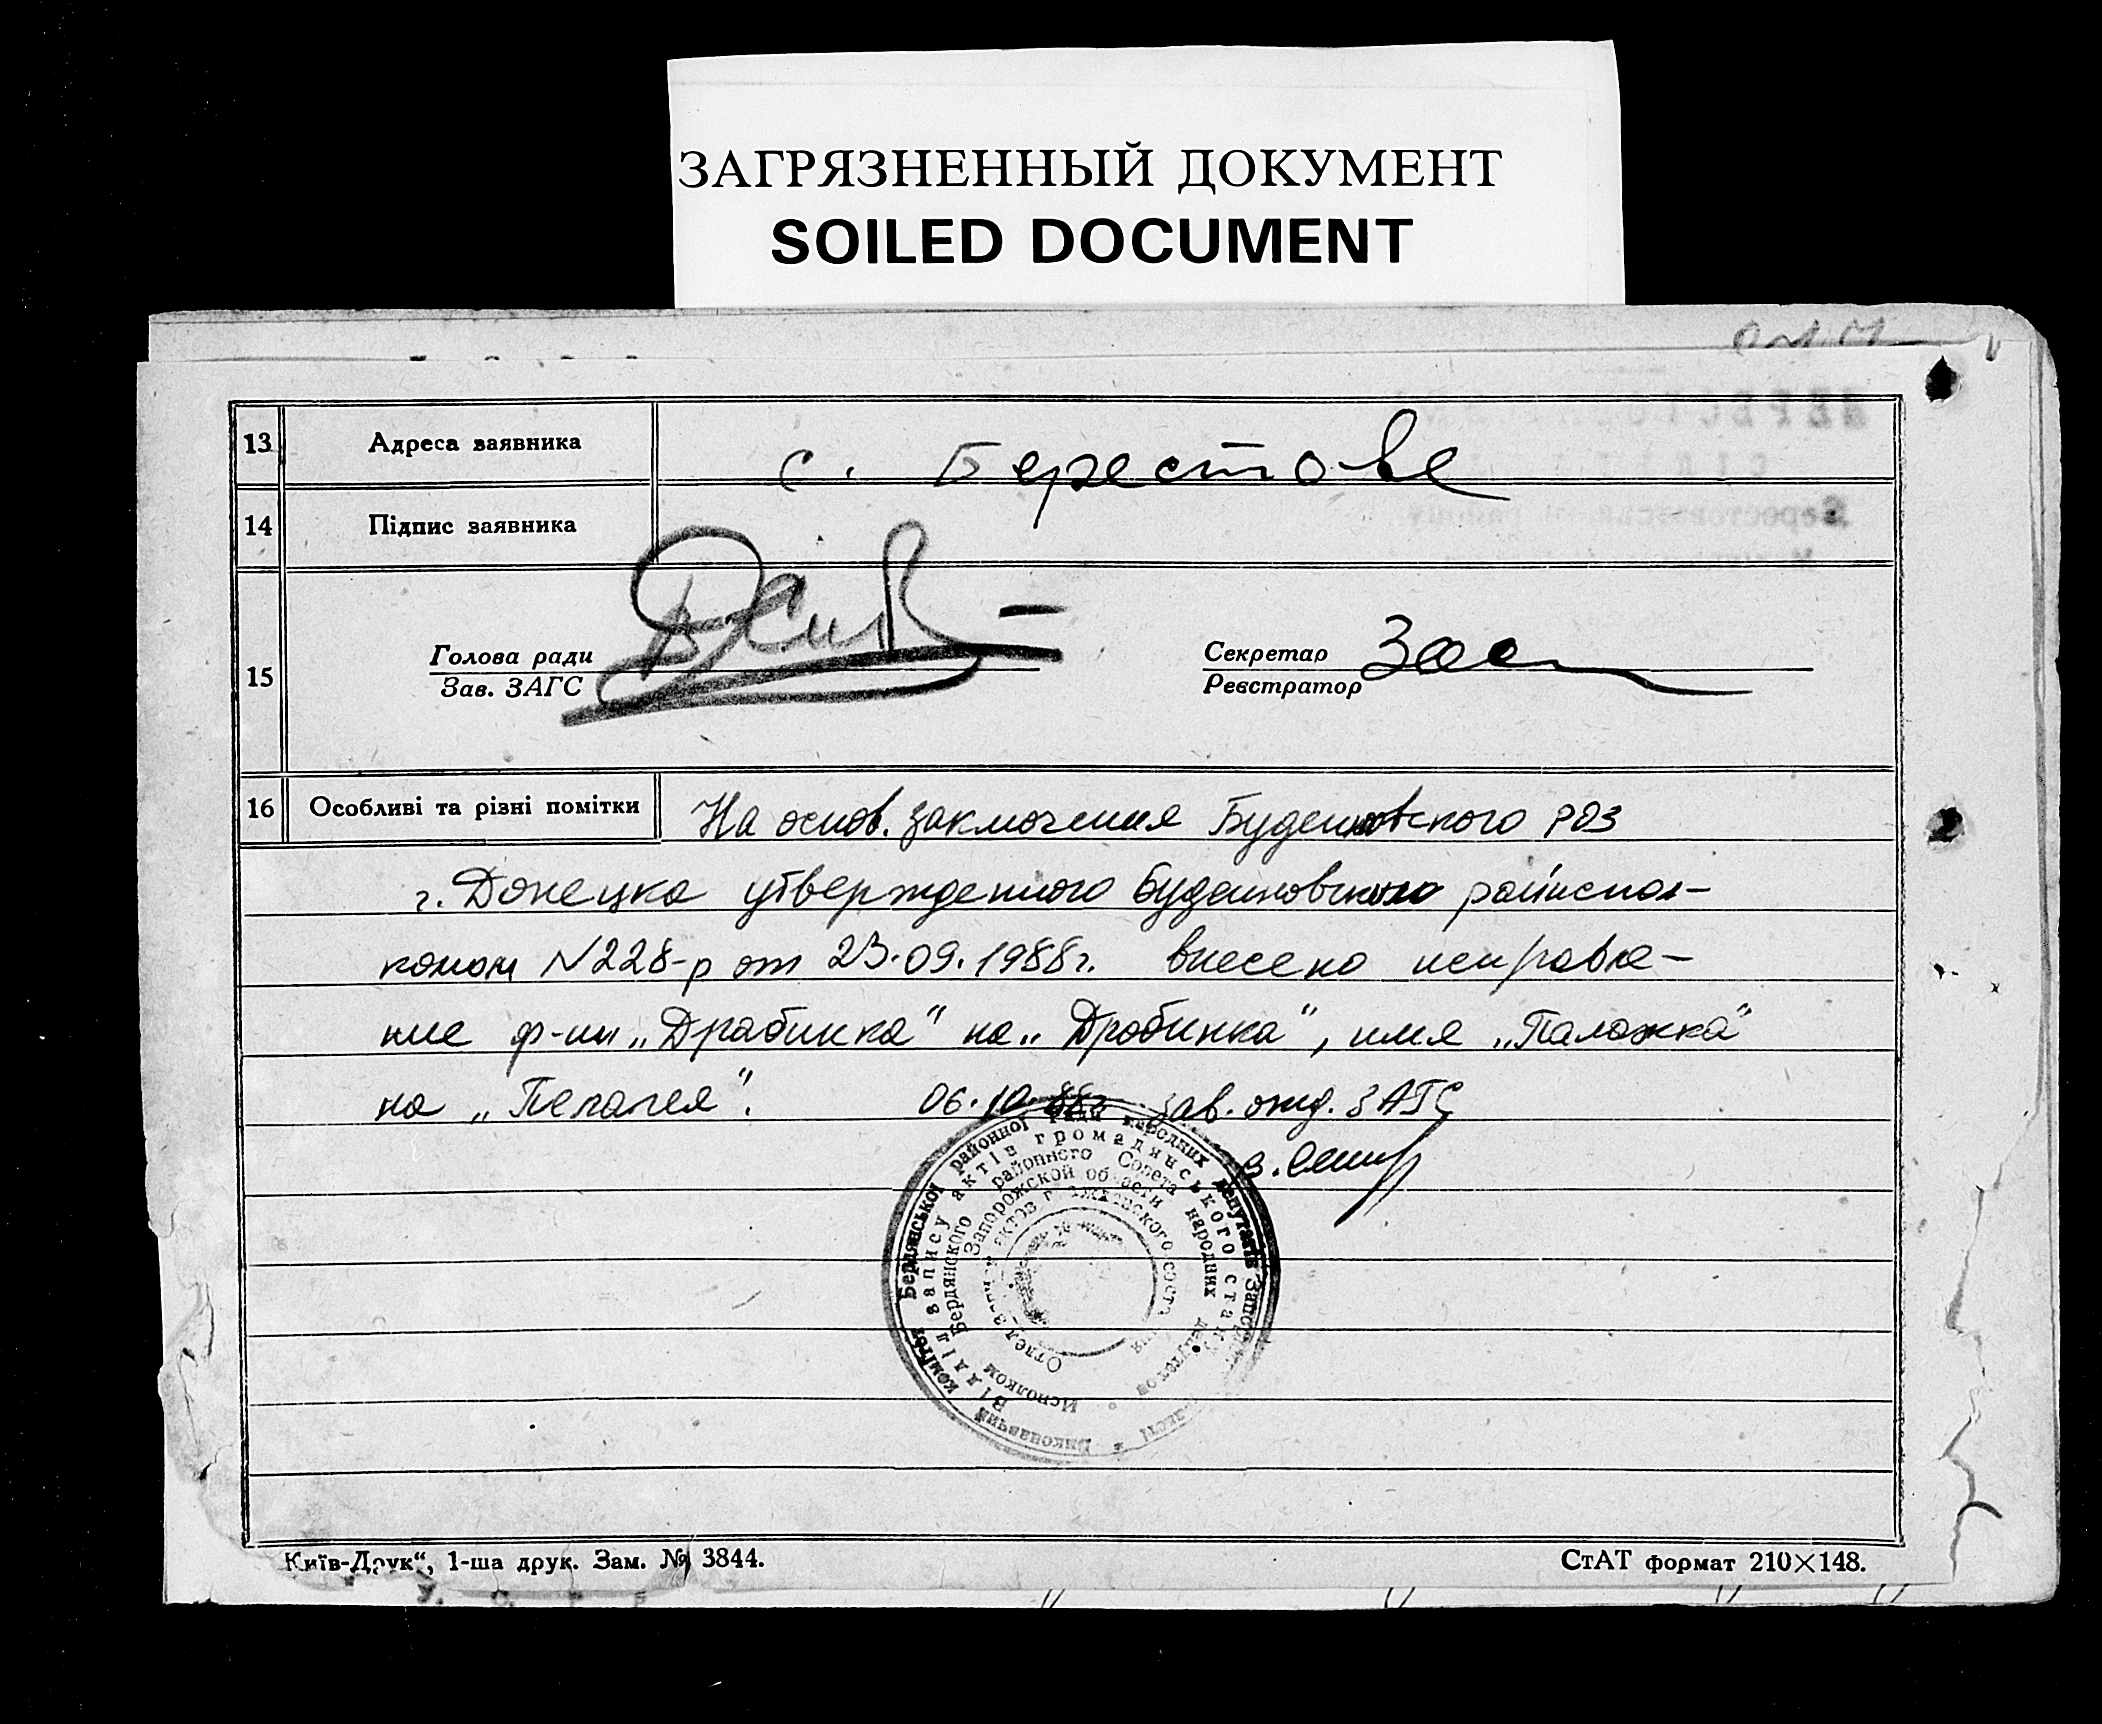 ЗАГРЯЗНЕННЫЙ ДОКУМЕНТ
SOILED DOCUMENT
13 Адреса заявника с. Берестове
14 Підпис заявника
15 Голова ради Секретар
Зав. ЗАГС Реєстратор
16 Особливі та різні помітки На основ. заключения Буденновского РОЗ
г. Донецка утвержденного Буденновским райиспол-
комом N228-р от 23.09.1988г. внесено исправле-
ние ф-ии „Драбинка" на „Дробинка", имя „Палажка"
на „Пелагея". 06.10.88г Зав. отд. ЗАГС
Виконавчий комітет Бердянської районної Ради народних депутатів
Відділ запису актів громадянського стану
Исполком Бердянского районного Совета народных депутатов
Запорожской области
Отдел записи актов гражданского состояния
Київ-Друк“, 1-ша друк. Зам. № 3844.
СтАТ формат 210×148.